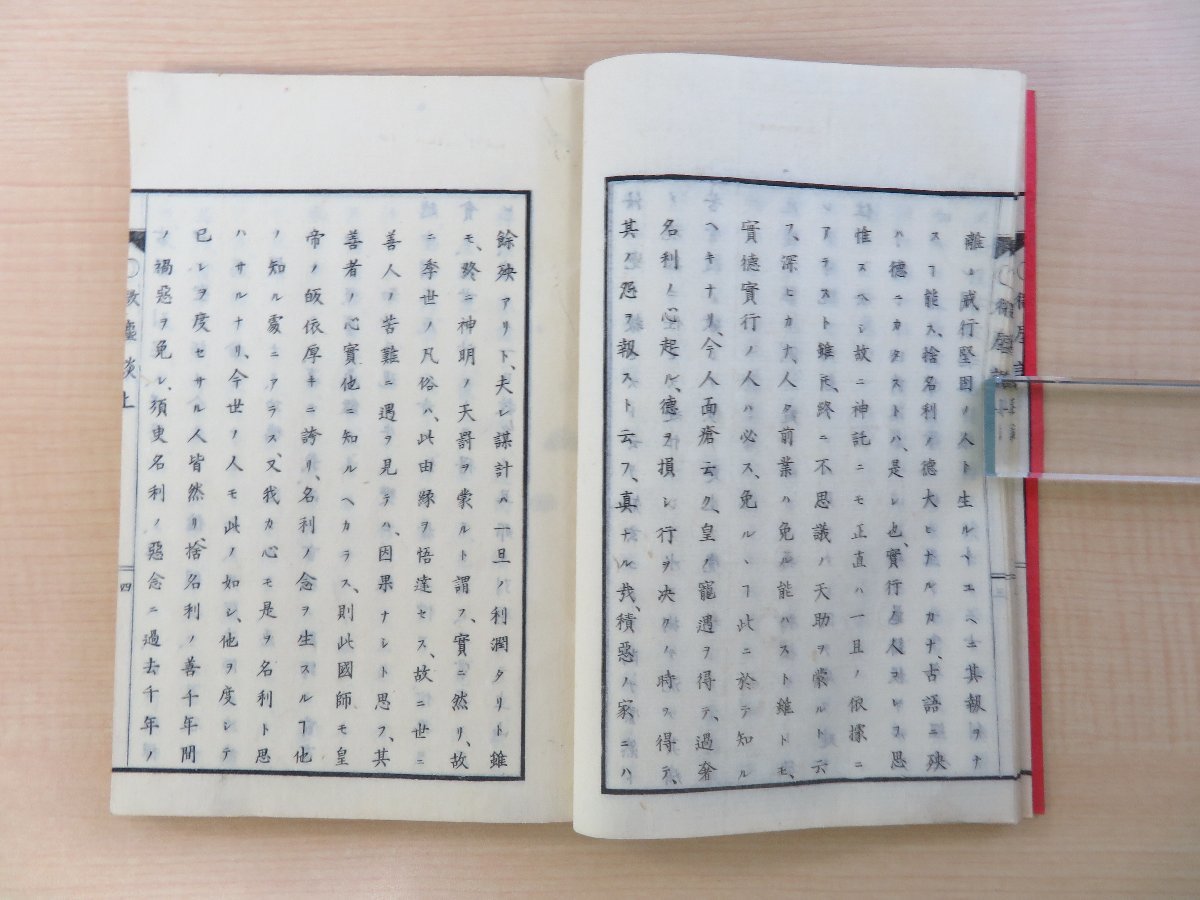 離レ戒行堅固ノ人ト生ルヽユヘニ其報ヲナ
スヿ能ス、捨名利ノ德大ヒナルカナ、古語ニ殃
ハ德ニカタストハ、是レ也、實行ノ人ヲレヲ思
惟スヘシ故ニ神託ニモ正直ハ一旦ノ依據ニ
アラスト雖𪜈、終ニ不思議ノ天助ヲ蒙ルト云
フ、深ヒカナ、人タ前業ハ免ル能ハスト雖トモ、
實德實行ノ人ハ必ス、免ルヽヿ此ニ於テ知ル
ヘキナリ、今人面瘡云ク、皇ノ寵遇ヲ得テ、過奢
名利ノ心起ル、德ヲ損シ行ヲ决クノ時ヲ得テ、
其ノ怨ヲ報スト云フ、真ナル㢤、積惡ノ家ニハ
餘殃アリト、夫レ謀計ハ一旦ノ利潤タリト雖
モ、終ニ神明ノ天罸ヲ蒙ルト謂フ、實ニ然リ、故
ニ季世ノ凡俗ハ、此由縁ヲ悟達セス、故ニ世ニ
善人ノ苦難ニ遇ヲ見テハ、因果ナシト思フ、其
善者ノ心實他ニ知ルヘカラス、則此國師モ皇
帝ノ皈依厚キニ誇リ、名利ノ念ヲ生スルヿ他
ノ知ル處ニアラス、又我カ心モ是ヲ名利ト思
ハサルナリ、今世ノ人モ此ノ如シ、他ヲ度シテ
已レヲ度セサル人皆然リ、捨名利ノ善千年間
ノ禍惡ヲ免レ、須臾名利ノ惡念ニ過去千年ノ
散塵談上
四